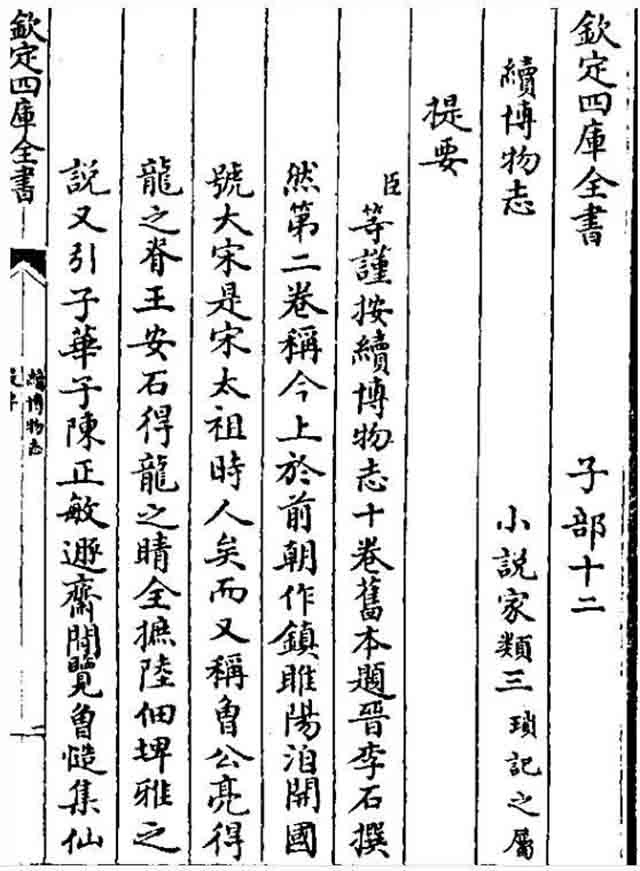 欽定四庫全書 子部十二
續博物志 小說家類三 瑣記之屬
提要
臣等謹按續博物志十卷舊本題晉李石撰
然第二卷稱今上於前朝作鎮睢陽洎開國
號大宋是宋太祖時人矣而又稱曾公亮得
龍之脊王安石得龍之睛全摭陸佃埤雅之
說又引子華子陳正敏遯齋閒覽曾慥集仙
欽定四庫全書
續博物志